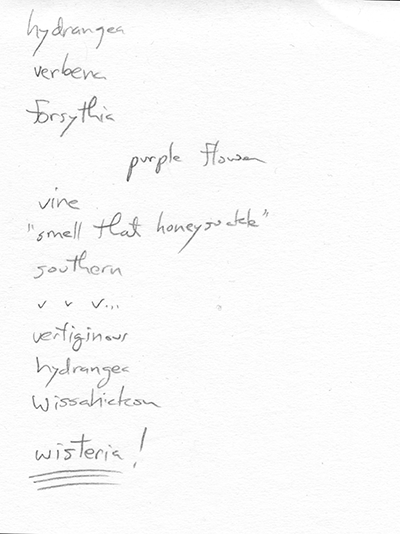 hydrangea
verbena
forsythia
purple flower
vine
"smell that honeysuckle"
southern
v v v...
vertiginous
hydrangea
Wissahickon
wisteria!